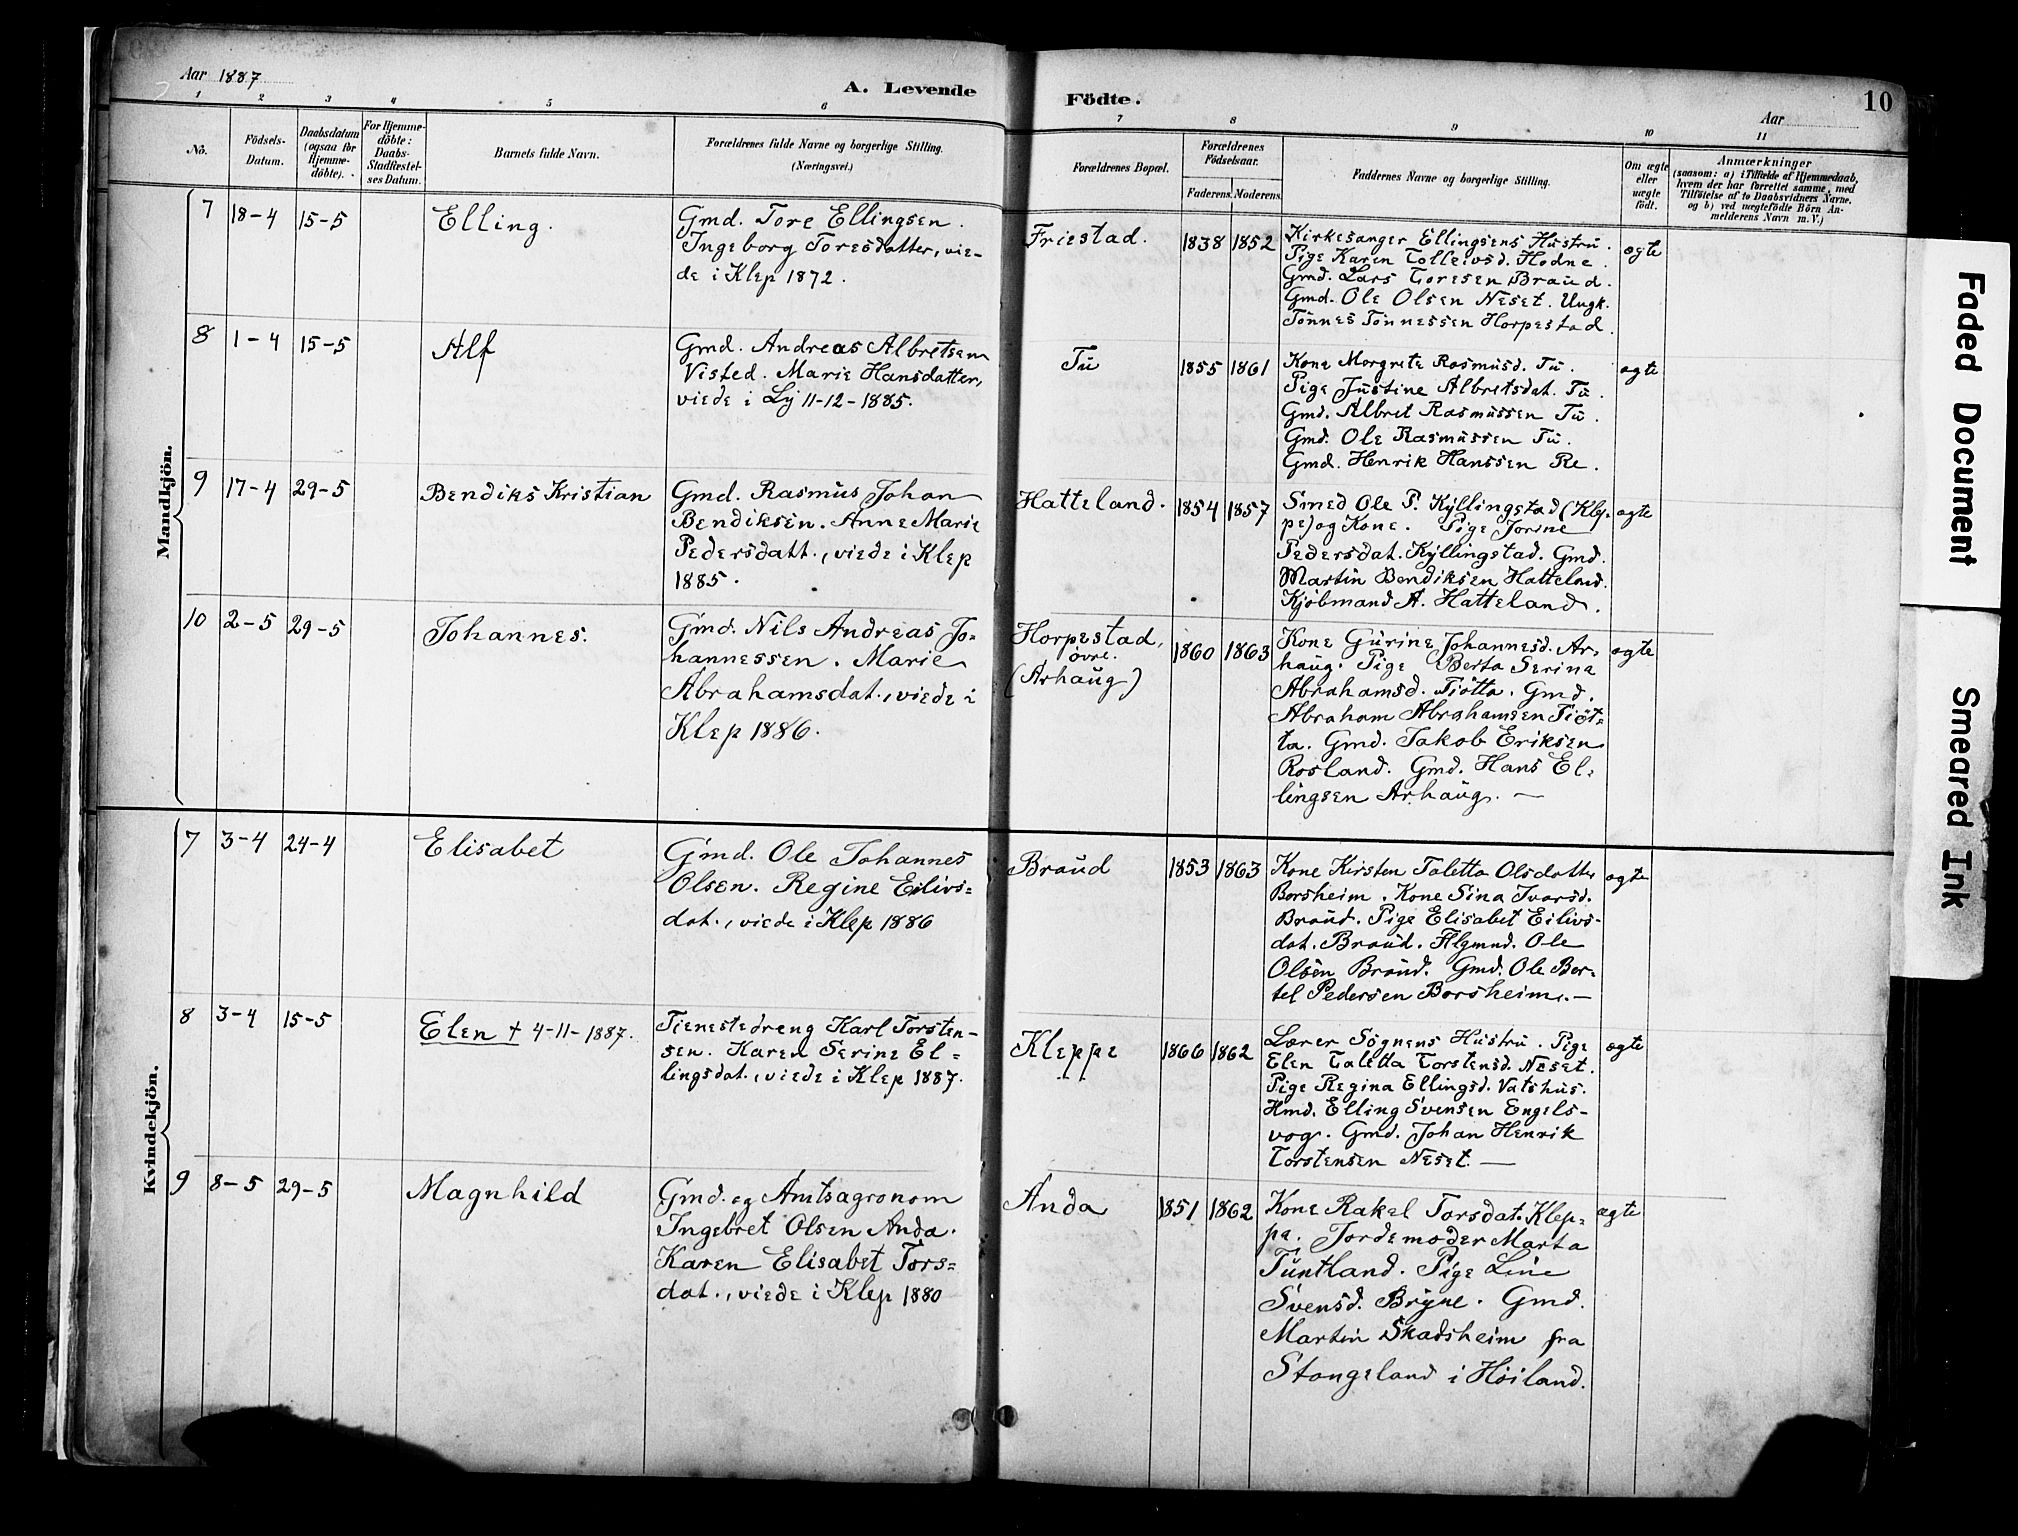 Aar 1887
A. Levende
Födte.
Aar
10
1 2 3 4 5 6 7 8 9 10 11
No.
Födsels-
Datum.
Daabsdatum
(ogsaa for
Hjemme-
döbte).
For Hjemme-
döbte:
Daabs-
Stadfæstel-
ses Datum.
Barnets fulde Navn.
Forældrenes fulde Navne og borgerlige Stilling.
(Næringsvei.)
Forældrenes Bopæl.
Forældrenes
Födselsaar.
Faderens. Moderens.
Faddernes Navne og borgerlige Stilling.
Om ægte
eller
uægte
födt.
Anmærkninger
(saasom: a) i Tilfælde af Hjemmedaab,
hvem der har forrettet samme, med
Tilföielse af to Daabsvidners Navne,
og b) ved uægtefödte Börn An-
melderens Navn m. V.)
Mandkjön.
7 18-4 15-5 Elling.
Gmd. Tore Ellingsen.
Ingeborg Toresdatter, vie-
de i Klep 1872.
Friestad. 1838 1852
Kirkesanger Ellingsens Hustru.
Pige Karen Tolleivsd. Hodne.
Gmd. Lars Toresen Braud.
Gmd. Ole Olsen Neset. Ungk.
Tönnes Tönnessen Horpestad.
ægte
8 1-4 15-5 Alf
Gmd. Andreas Albretsen
Visted. Marie Hansdatter,
viede i Ly 11-12-1885.
Tu 1855 1861
Kone Morgrete Rasmusd. Tu.
Pige Justine Albretsdat. Tu.
Gmd. Albret Rasmussen Tu.
Gmd. Ole Rasmussen Tu.
Gmd. Henrik Hanssen Re.
ægte
9 17-4 29-5 Bendiks Kristian
Gmd. Rasmus Johan
Bendiksen. Anne Marie
Pedersdatt., viede i Klep
1885.
Hatteland. 1854 1857
Smed Ole P. Kyllingstad (Klep-
pe) og Kone. Pige Jorine
Pedersdat. Kyllingstad. Gmd.
Martin Bendiksen Hatteland.
Kjöbmand A. Hatteland.
ægte
10 2-5 29-5 Johannes.
Gmd. Nils Andreas Jo-
hannessen. Marie
Abrahamsdat., viede i
Klep 1886.
Horpestad,
övre.
(Arhaug)
1860 1863
Kone Gurine Johannesd. Ar-
haug. Pige Berta Serina
Abrahamsd. Tjötta. Gmd.
Abraham Abrahamsen Tjöt-
ta. Gmd. Jakob Eriksen
Rosland. Gmd. Hans El-
lingsen Arhaug. —
ægte
Kvindekjön.
7 3-4 24-4 Elisabet
Gmd. Ole Johannes
Olsen. Regine Eilivs-
dat., viede i Klep 1886
Braud 1853 1863
Kone Kirsten Taletta Olsdatter
Borsheim. Kone Sina Ivarsd.
Braut. Pige Elisabet Eilivs-
dat. Braud. Ole
Olsen Braud. Gmd. Ole Ber-
tel Pedersen Borsheim. —
ægte
8 3-4 15-5 Elen † 4-11-1887.
Tjenestedreng Karl Torsten-
sen. Karen Serine El-
lingsdat., viede i Klep 1887.
Kleppe 1866 1862
Lærer Sögnens Hustru. Pige
Elen Taletta Torstensd. Neset.
Pige Regina Ellingsd. Vatshus.
Hmd. Elling Svensen Engels-
vog. Gmd. Johan Henrik
Torstensen Neset. —
ægte
9 8-5 29-5 Magnhild
Gmd. og Amtsagronom
Ingebret Olsen Anda.
Karen Elisabet Tors-
dat., viede i Klep 1880
Anda 1851 1862
Kone Rakel Torsdat. Klep-
pe. Jordemoder Marta
Tuntland. Pige Line
Svensd. Bryne. Gmd.
Martin Skadsheim fra
Stangeland i Höiland.
ægte
Faded Document
Smeared Ink